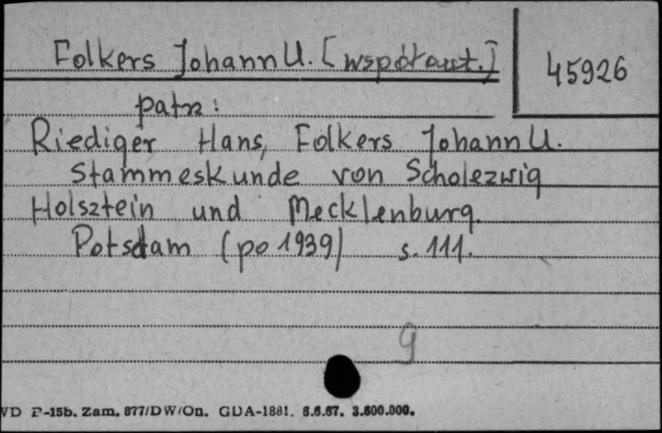 Folkers Johann U. [współaut.]
45926
patrz:
Riediger Hans, Folkers Johann U.
Stammeskunde von Scholezwig
Holsztein und Mecklenburg.
Potsdam (po 1939) s. 111.
g
VD P-15b. Zam. 877/DW/On. GDA-1881. 6.6.67. 3.600.000.